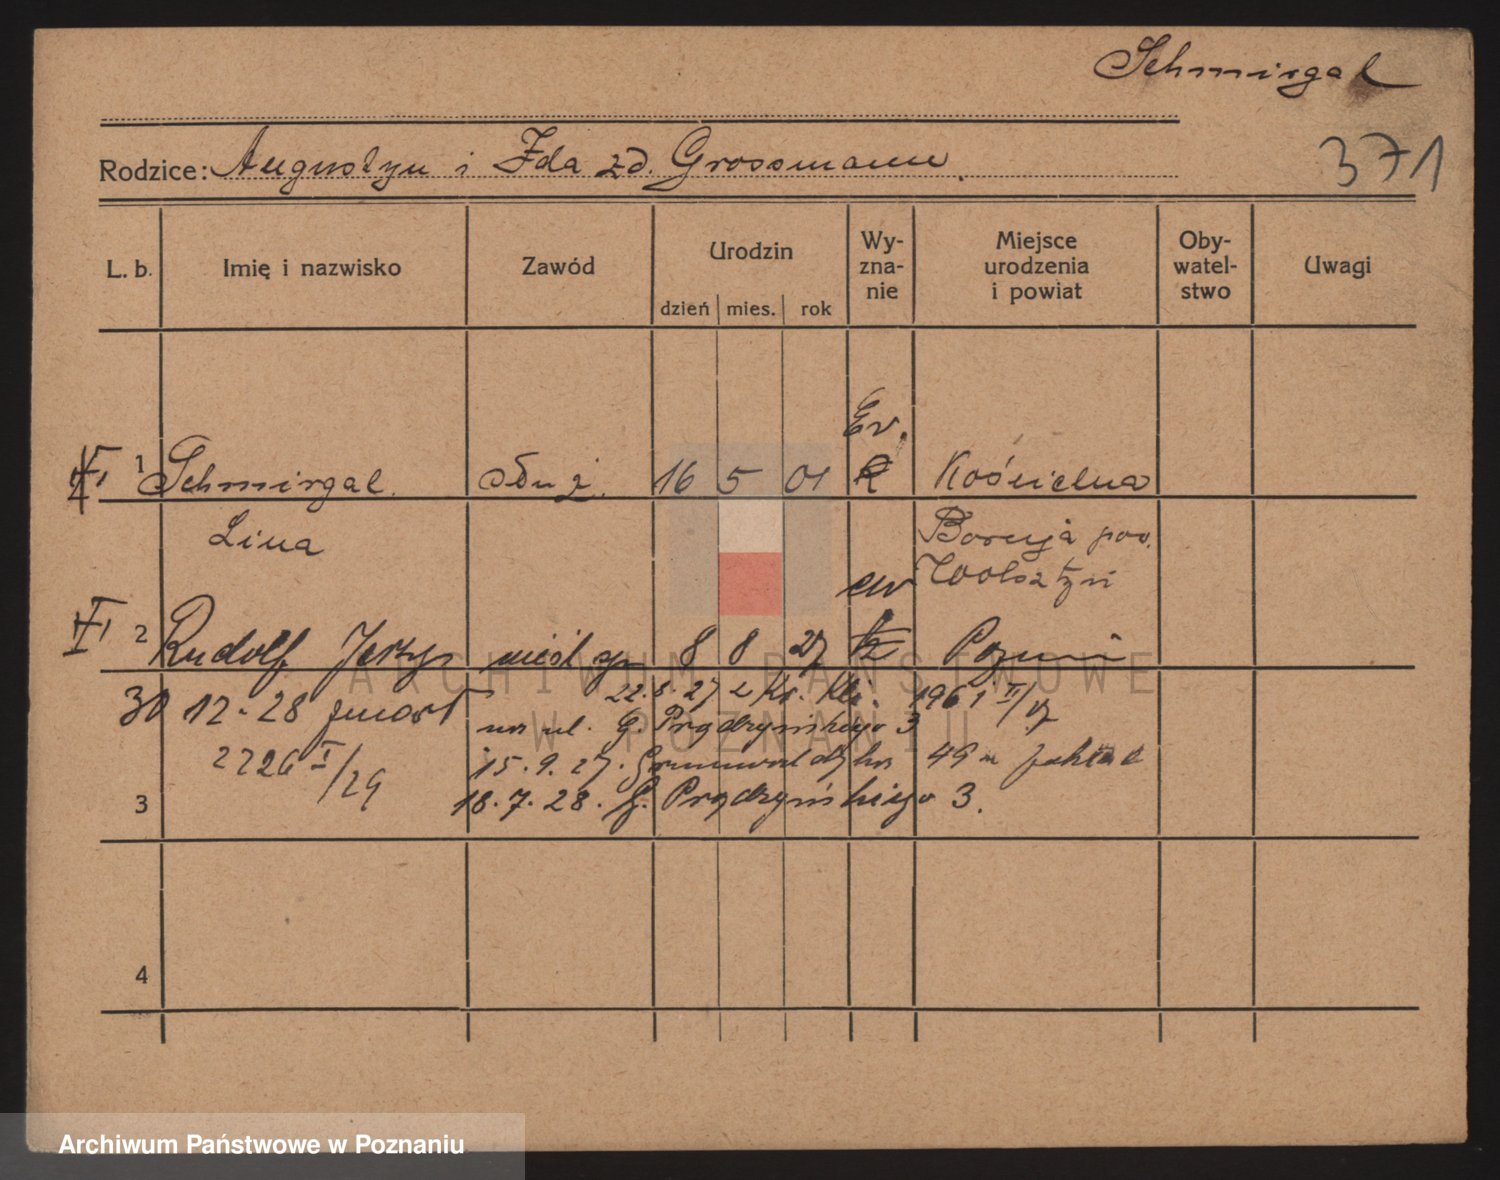 Schmirgal
371
Rodzice: Augustyn i Ida zd. Grossmann.
L. b. Imię i nazwisko Zawód Urodzin dzień mies. rok Wy-zna-nie Miejsce urodzenia i powiat Oby-watel-stwo Uwagi
Ev.
1 Schmirgal służ. 16 5 01 K Kościelna
Lina Boruja pow.
Wolsztyn
ew
2 Rudolf Jerzy nieśl 8 8 27 Poznań
30 12. 28 zmarł 22.8.27 z Kr. Kli. 1961 II/27
na ul. G. Prądzyńskiego 3
2226 I/29 15. 9. 27. Grunwaldzka 49
3 18. 7. 28. G. Prądzyńskiego 3.
4
ARCHIWUM PAŃSTWOWE
W POZNANIU
Archiwum Państwowe w Poznaniu